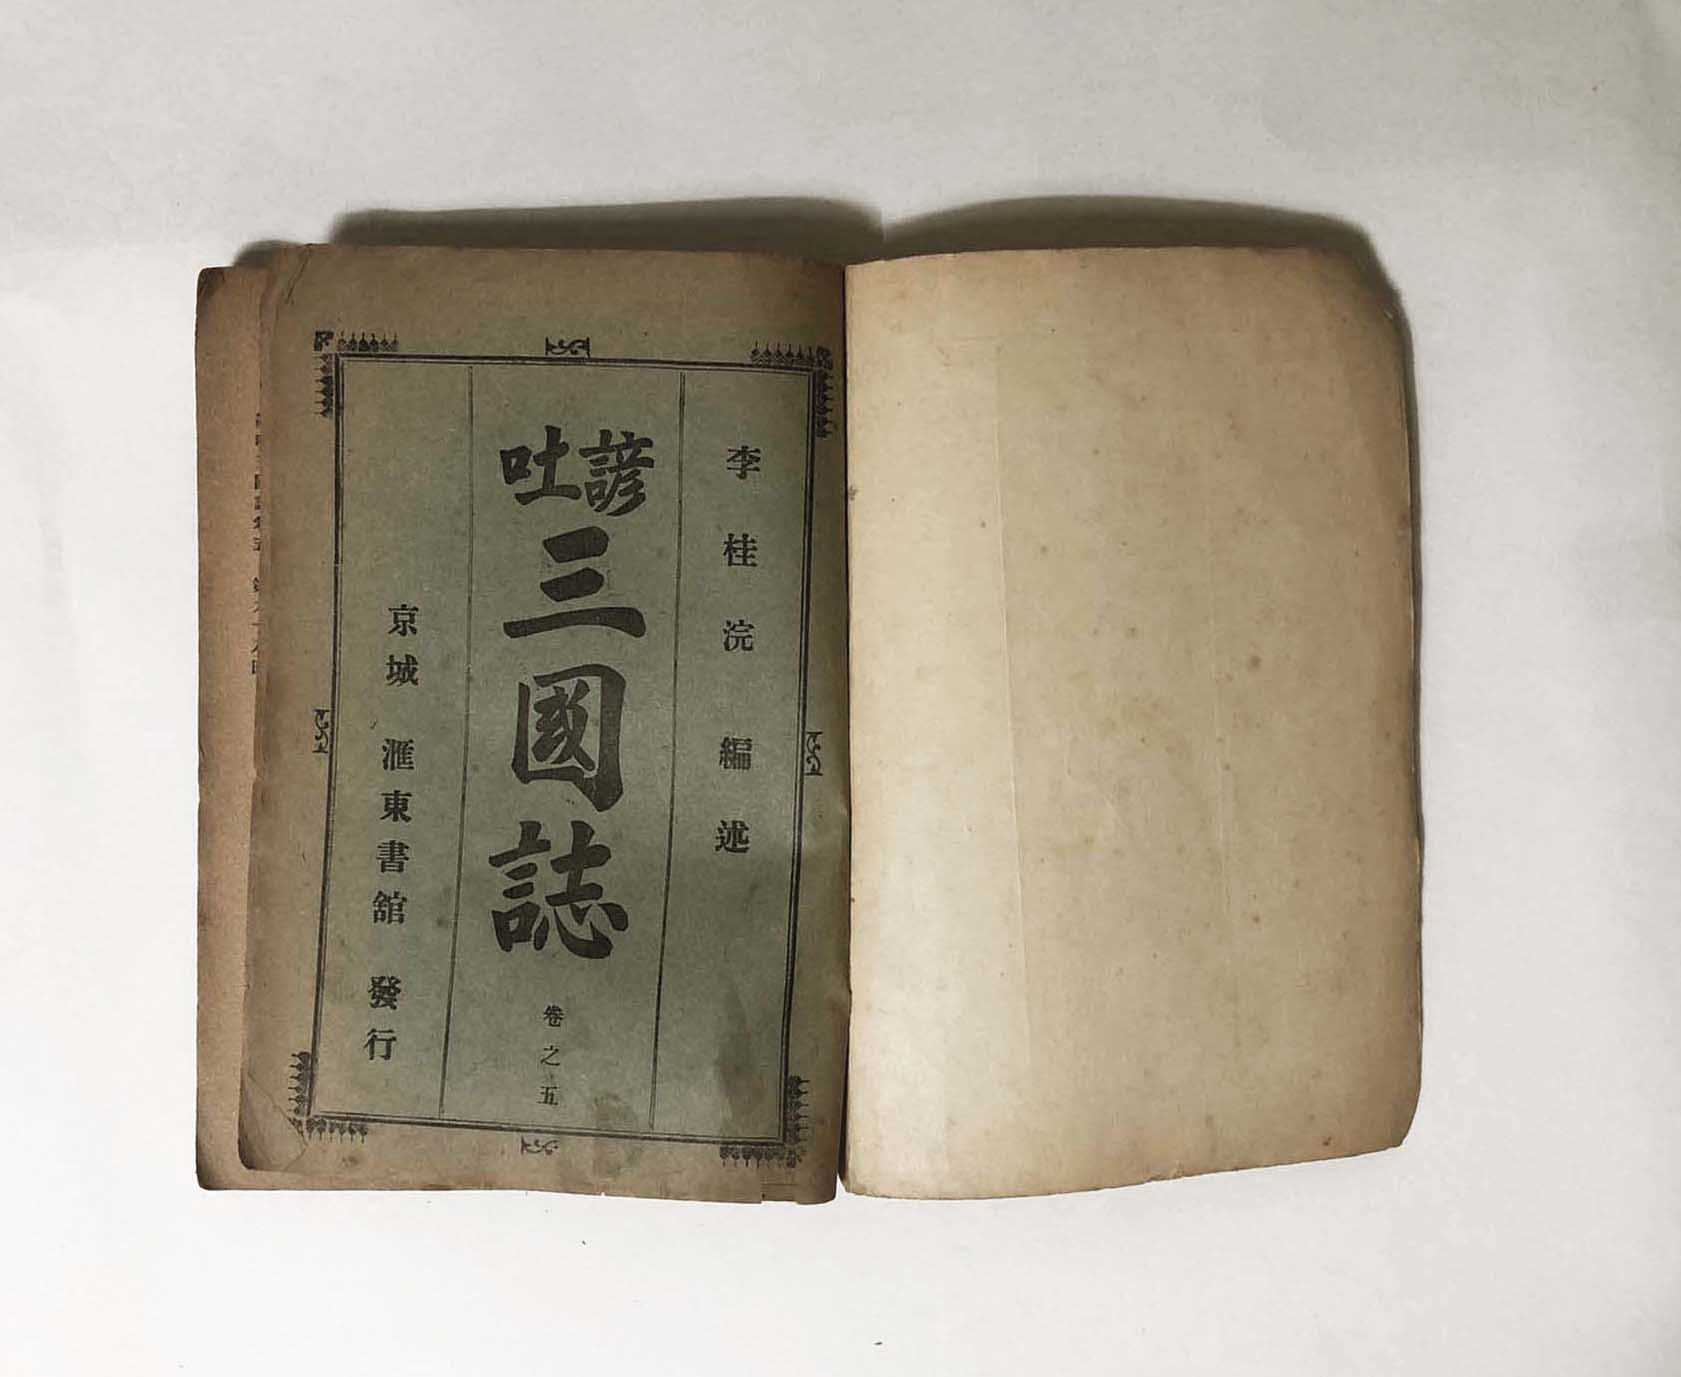 李桂浣 編述
諺吐
三國誌 卷之五
京城 滙東書舘 發行